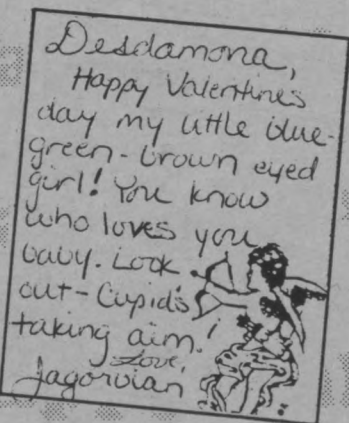 Desdamona,
Happy Valentines
day my little blue-
green-brown eyed
girl! You know
who loves you
baby. Look
out-Cupid's
taking aim!
Love,
Jagorvian